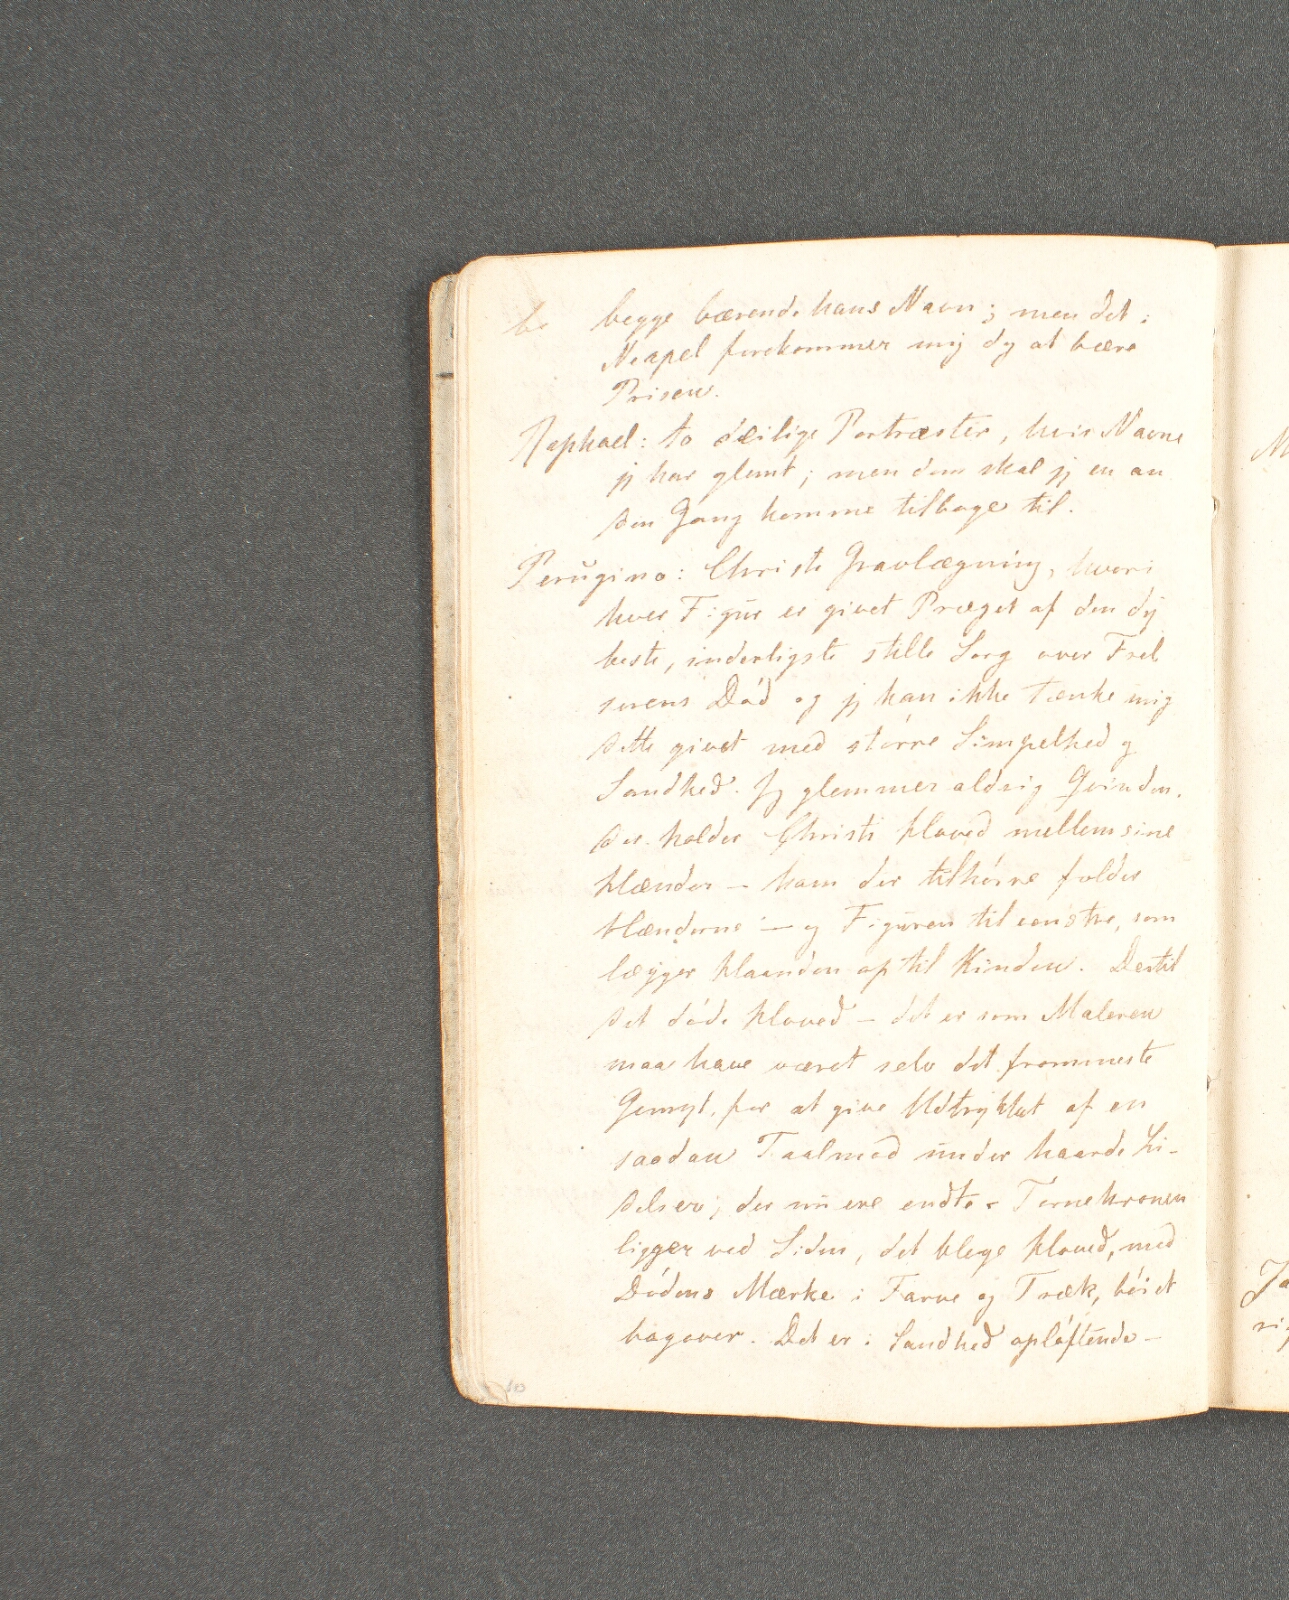 be begge bærende hans Navn; men det i
Neapel forekommer mig dog at bære
Prisen.
Raphael: to deilige Portræter, hvis Navne
jeg har glemt; men dem skal jeg en an
den Gang komme tilbage til.
Perugino: Christi Gravlægning, hvori
hver Figur er givet Præget af den dy
beste, inderligste stille Sorg over Frel
serens Död og jeg kan ikke tænke mig
dette givet med större Simpelhed og
Sandhed. Jeg glemmer aldrig Qvinden,
der holder Christi Hoved mellem sine
Hænder – ham der tilhöire folder
Hænderne – og Figuren til venstre, som
lægger Haanden op til Kinden. Dertil
det döde Hoved – det er som Maleren
maa have været selv det frommeste
Gemyt, for at give Udtrykket af en
saadan Taalmod under haarde Li-
delser, der nu ere endte. Tornekronen
ligger ved Siden, det blege Hoved, med
Dödens Mærke i Farve og Træk, böiet
bagover. Det er i Sandhed oplöftende –